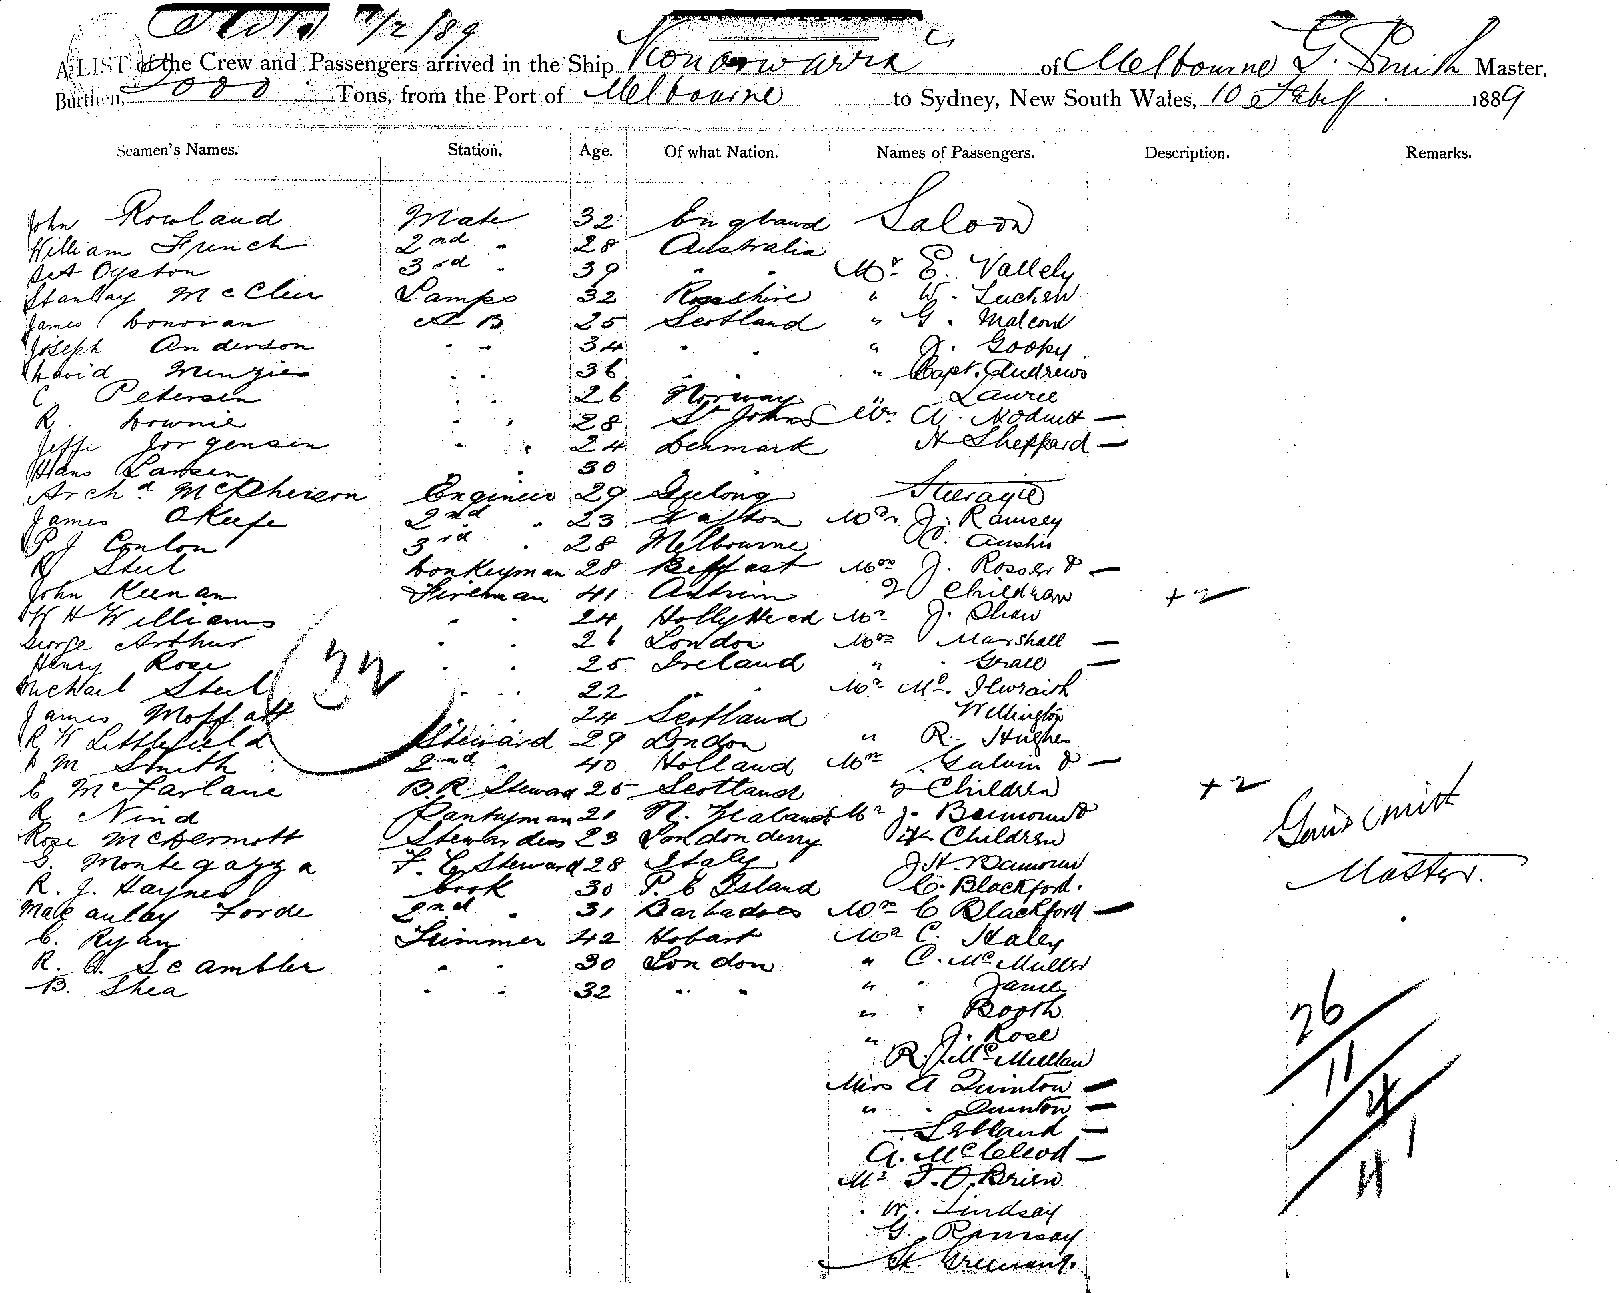 11/2/89
A LIST of the Crew and Passengers arrived in the Ship Konoowarra of Melbourne G. Smith Master,
Burthen, 2000 Tons, from the Port of Melbourne to Sydney, New South Wales, 10 Feby 1889
Seamen's Names. Station. Age. Of what Nation. Names of Passengers. Description. Remarks.
John Rowland Mate 32 England Saloon
William French 2nd " 28 Australia
Oyston 3rd " 39 " " Mr E. Vallely
Stanley McClur Lamps 32 Rosshire " W. Lucken
James Donovan A B 25 Scotland " G.
Joseph Anderson " " 34 " " " J. Gooky
David Menzies " " 36 " " " Capt. Andrews
C Petersen " " 26 Norway " Laurie
R. Downie " " 28 St Johns Mrs A. Hodnutt —
Jeffe Jorgensen " " 24 Denmark H Sheppard —
Hans Larsen " 30
Archd McPherson Engineer 29 Geelong Steerage
James OKeefe 2nd " 23 Mr J. Ramsey
P J Conlon 3rd " 28 Melbourne C. Austin
R Steel Donkeyman 28 Belfast Mrs J. Rosser & —
John Keenan Fireman 41 Antrim 2 Children +2
W H Williams " " 24 Hollyhead Mr J. Shaw
George Arthur " " 26 London Mrs Marshall —
Henry Rose " " 25 Ireland " " Grace —
Michael Steel " " 22 " " Mr Mc. Ilwraith
James Moffatt 24 Scotland Wellington
R W Littlefield Steward 29 London " R. Hughes
M Smith 2nd " 40 Holland Mrs Galvin & —
C McFarlane B.R. Steward 25 Scotland 2 Children +2
R Nind Pantryman 21 N. Zealand Mr J. Beaumont &
Rose McDermott Stewardess 23 Londonderry Children
S. Montegazza F. C. Steward 28 Italy J H
R. J. Haynes Cook 30 P. E Island C. Blackford.
Macaulay Forde 2nd " 31 Barbadoes Mrs C Blackford —
C. Ryan Trimmer 42 Hobart Mr C. Haley
R. A. Scambler " " 30 London " C. McMullen
B. Shea " " 32 " " " " Jane
" " Booth
" J. Rose
R. J McMullan
Miss A Quinton —
" " Quinton —
—
A. McCleod —
Mr T. O'Brien
" W. Lindsay
G. Ramsay
H
32
Smith
Master.
26
11
4
41